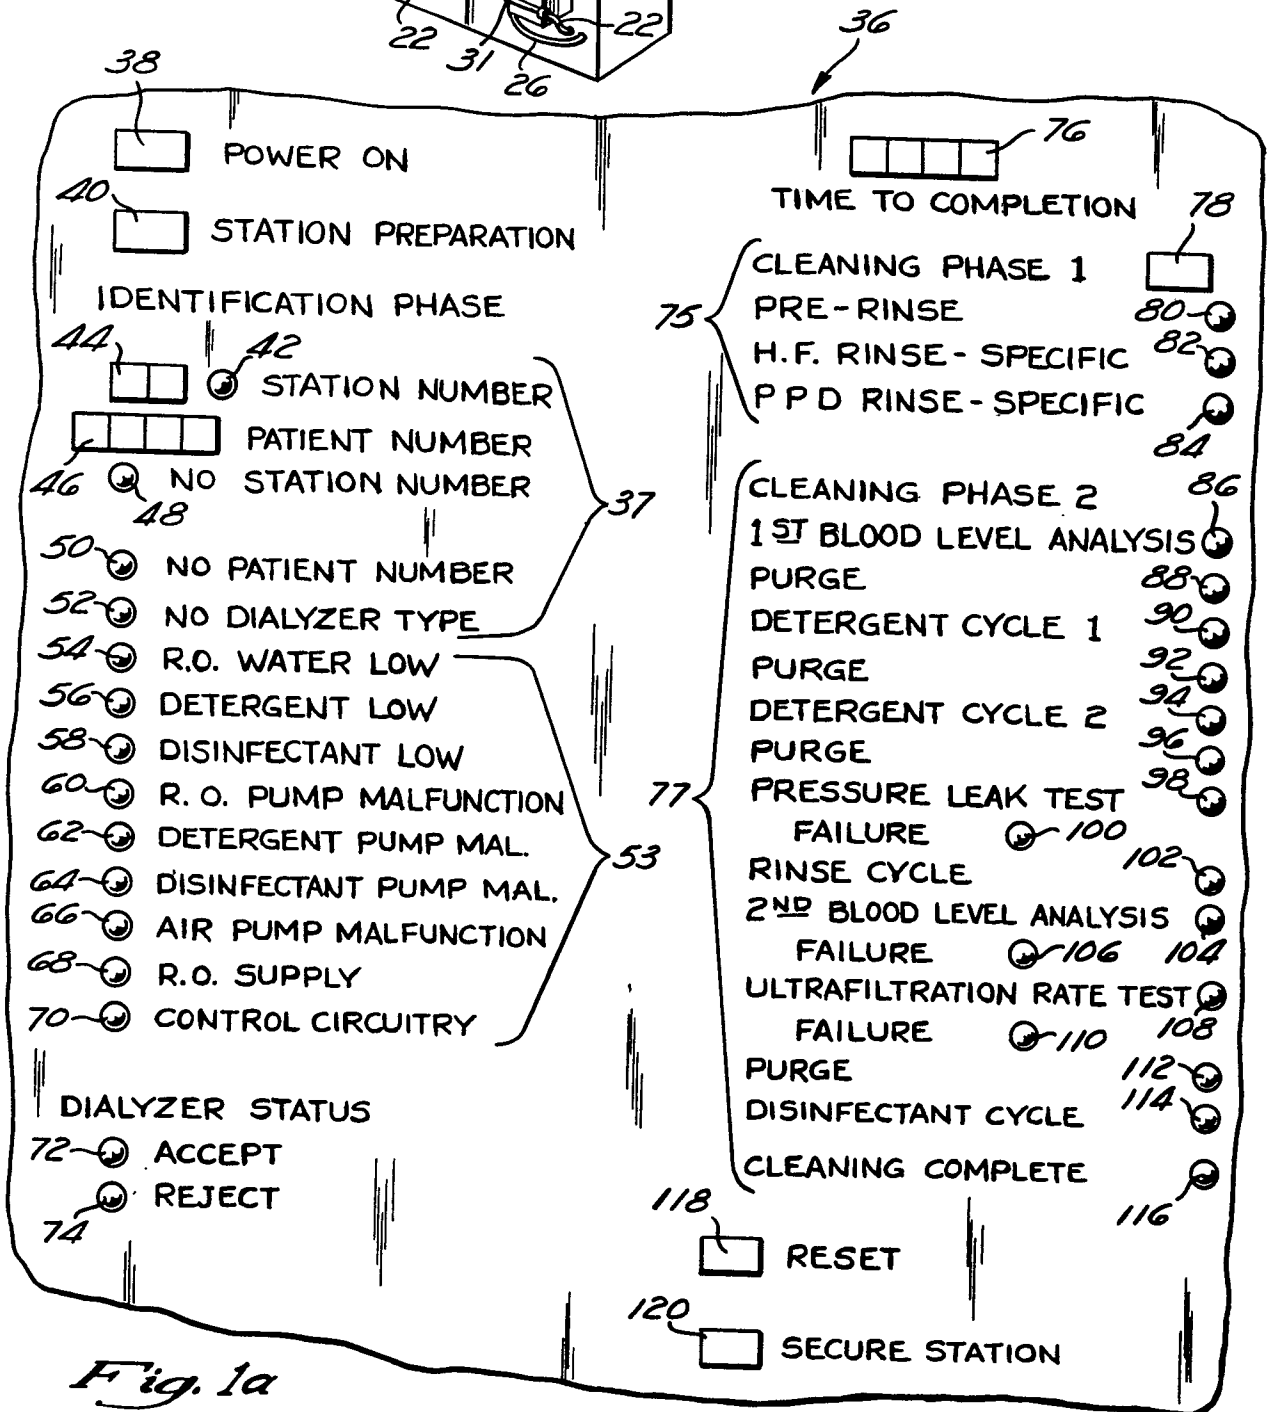 22
31
26
22
36
38
POWER ON
40
STATION PREPARATION
IDENTIFICATION PHASE
44
42
STATION NUMBER
PATIENT NUMBER
46
NO STATION NUMBER
48
37
50
NO PATIENT NUMBER
52
NO DIALYZER TYPE
54
R.O. WATER LOW
56
DETERGENT LOW
58
DISINFECTANT LOW
60
R.O. PUMP MALFUNCTION
62
DETERGENT PUMP MAL.
53
64
DISINFECTANT PUMP MAL.
66
AIR PUMP MALFUNCTION
68
R.O. SUPPLY
70
CONTROL CIRCUITRY
DIALYZER STATUS
72
ACCEPT
REJECT
74
76
TIME TO COMPLETION
78
CLEANING PHASE 1
75
PRE-RINSE
80
H.F. RINSE-SPECIFIC
82
PPD RINSE-SPECIFIC
84
CLEANING PHASE 2
86
1ST BLOOD LEVEL ANALYSIS
PURGE
88
DETERGENT CYCLE 1
90
PURGE
92
DETERGENT CYCLE 2
94
PURGE
96
77
PRESSURE LEAK TEST
98
FAILURE
100
RINSE CYCLE
102
2ND BLOOD LEVEL ANALYSIS
FAILURE
106
104
ULTRAFILTRATION RATE TEST
FAILURE
110
108
PURGE
112
DISINFECTANT CYCLE
114
CLEANING COMPLETE
116
118
RESET
120
SECURE STATION
Fig. 1a